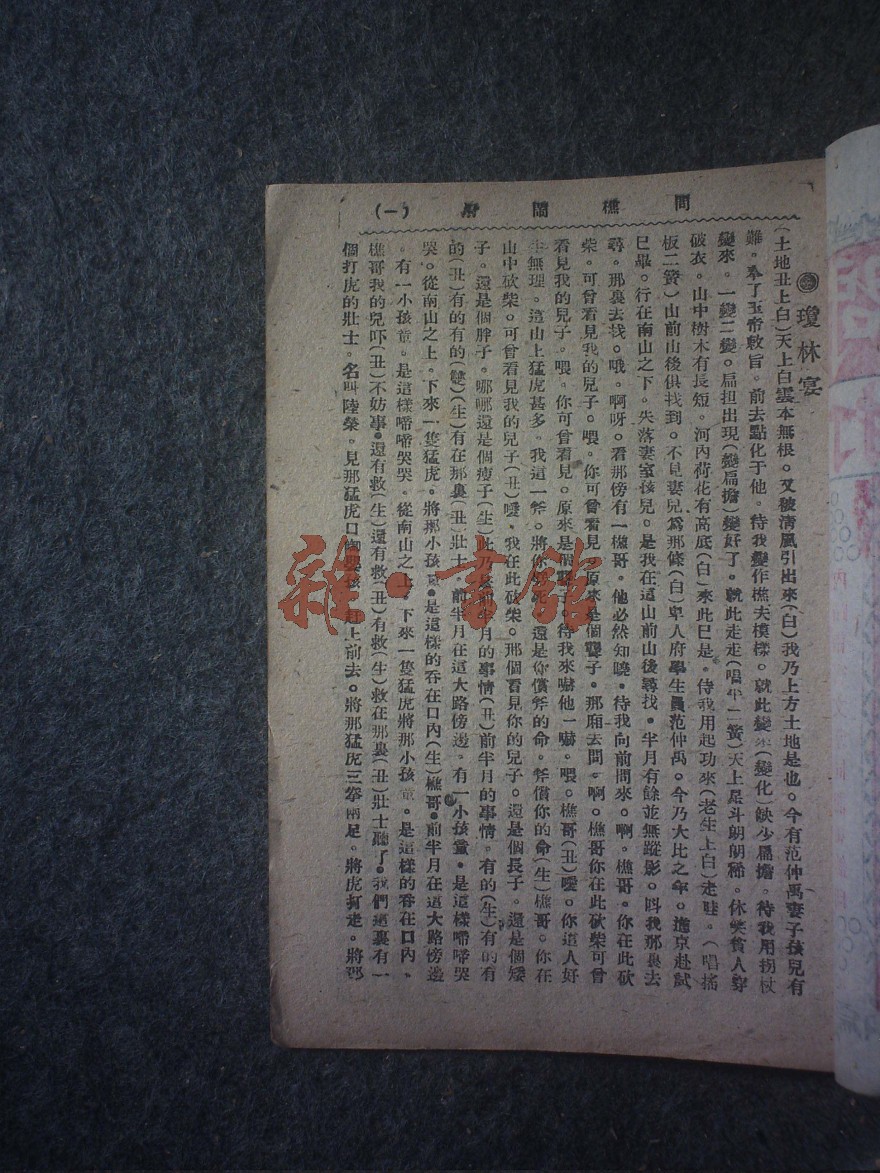 問樵鬧府 (一)
瓊林宴
(土地丑上白)天上白雲本無根。又被清風引出來(白)我乃上方土地是也。今有范仲禹妻子孩兒有
難。奉了玉帝敕旨。前去點化于他。待我變作樵夫模樣。就此變來(變化)缺少扁擔。待我用拐杖
變來。一變二變。扁担出現(變扁擔)變好了。就此走走(唱半二簧)天上星斗朗朗稀。休笑貧人穿
破衣。山中樹木有長短。河內荷花有高底(白)來此巳是。待我用起功來(老生上白)走哇。(唱搖
板二簧)山前山後俱找到。不見妻兒爲那條(白)卑人府學生員范仲禹。今乃大比之年。進京赴試
巳畢。行在南山之下。失落妻室孩兒。是我在這山前山後尋找。半月有餘並無蹤影。叫我那裏去
尋。那裏去找。哦。啊呀。看那傍有一樵哥。他必然知曉。待我向前問來。啊。樵哥。你在此砍
柴。可曾看見我的兒子。喂。你可曾看見。原來是個聾子。那廂去問。啊。樵哥你在此砍柴可曾
看見我的兒子。喂。你可曾看見。原來是個聾子。待我來嚇他一嚇。喂。樵哥(丑)噯。你這人好
生無理。這山上猛虎甚多。我這一斧。將你 還是你償斧的命。斧償你的命(生)樵哥。你在
山中砍柴。可曾看見我的兒子(丑)噯。我在此砍柴。那個看見你的兒子。還是個長子。還是個矮
子。還是個胖子。哪哪還是個瘦子(生)此乃是前半月的事情(丑)前半月的事情。有的(生)有的有
的(丑)有的有的(生)有在那裏(丑)壯士。前半月在這大路傍邊。有一小孩童。是這樣啼啼哭
哭。從南山之上。下來一隻猛虎。將那小孩童。是這樣的吞在口內(生)樵哥。前半月在這大路傍邊
。有一小孩童。是這樣啼啼哭哭。從南山之上。下來一隻猛虎將那小孩童。是這樣的吞在口內。
樵哥我的兒吓(丑)不妨事。還有救(生)還有救(丑)有救(生)救在那裏(丑)壯士聽了。我們這裏有一
個打虎的壯士。名叫陸榮。見那猛虎口啣嬰孩。趕上前去。將那猛虎三拳兩足。將虎打走。將那
雜·書館